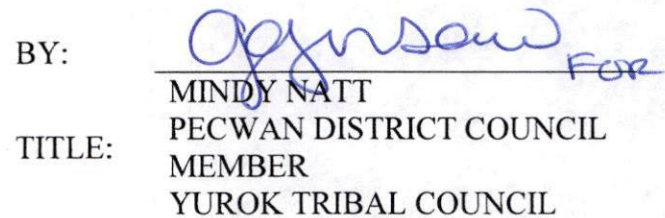 BY:
FOR
MINDY NATT
TITLE: PECWAN DISTRICT COUNCIL
MEMBER
YUROK TRIBAL COUNCIL